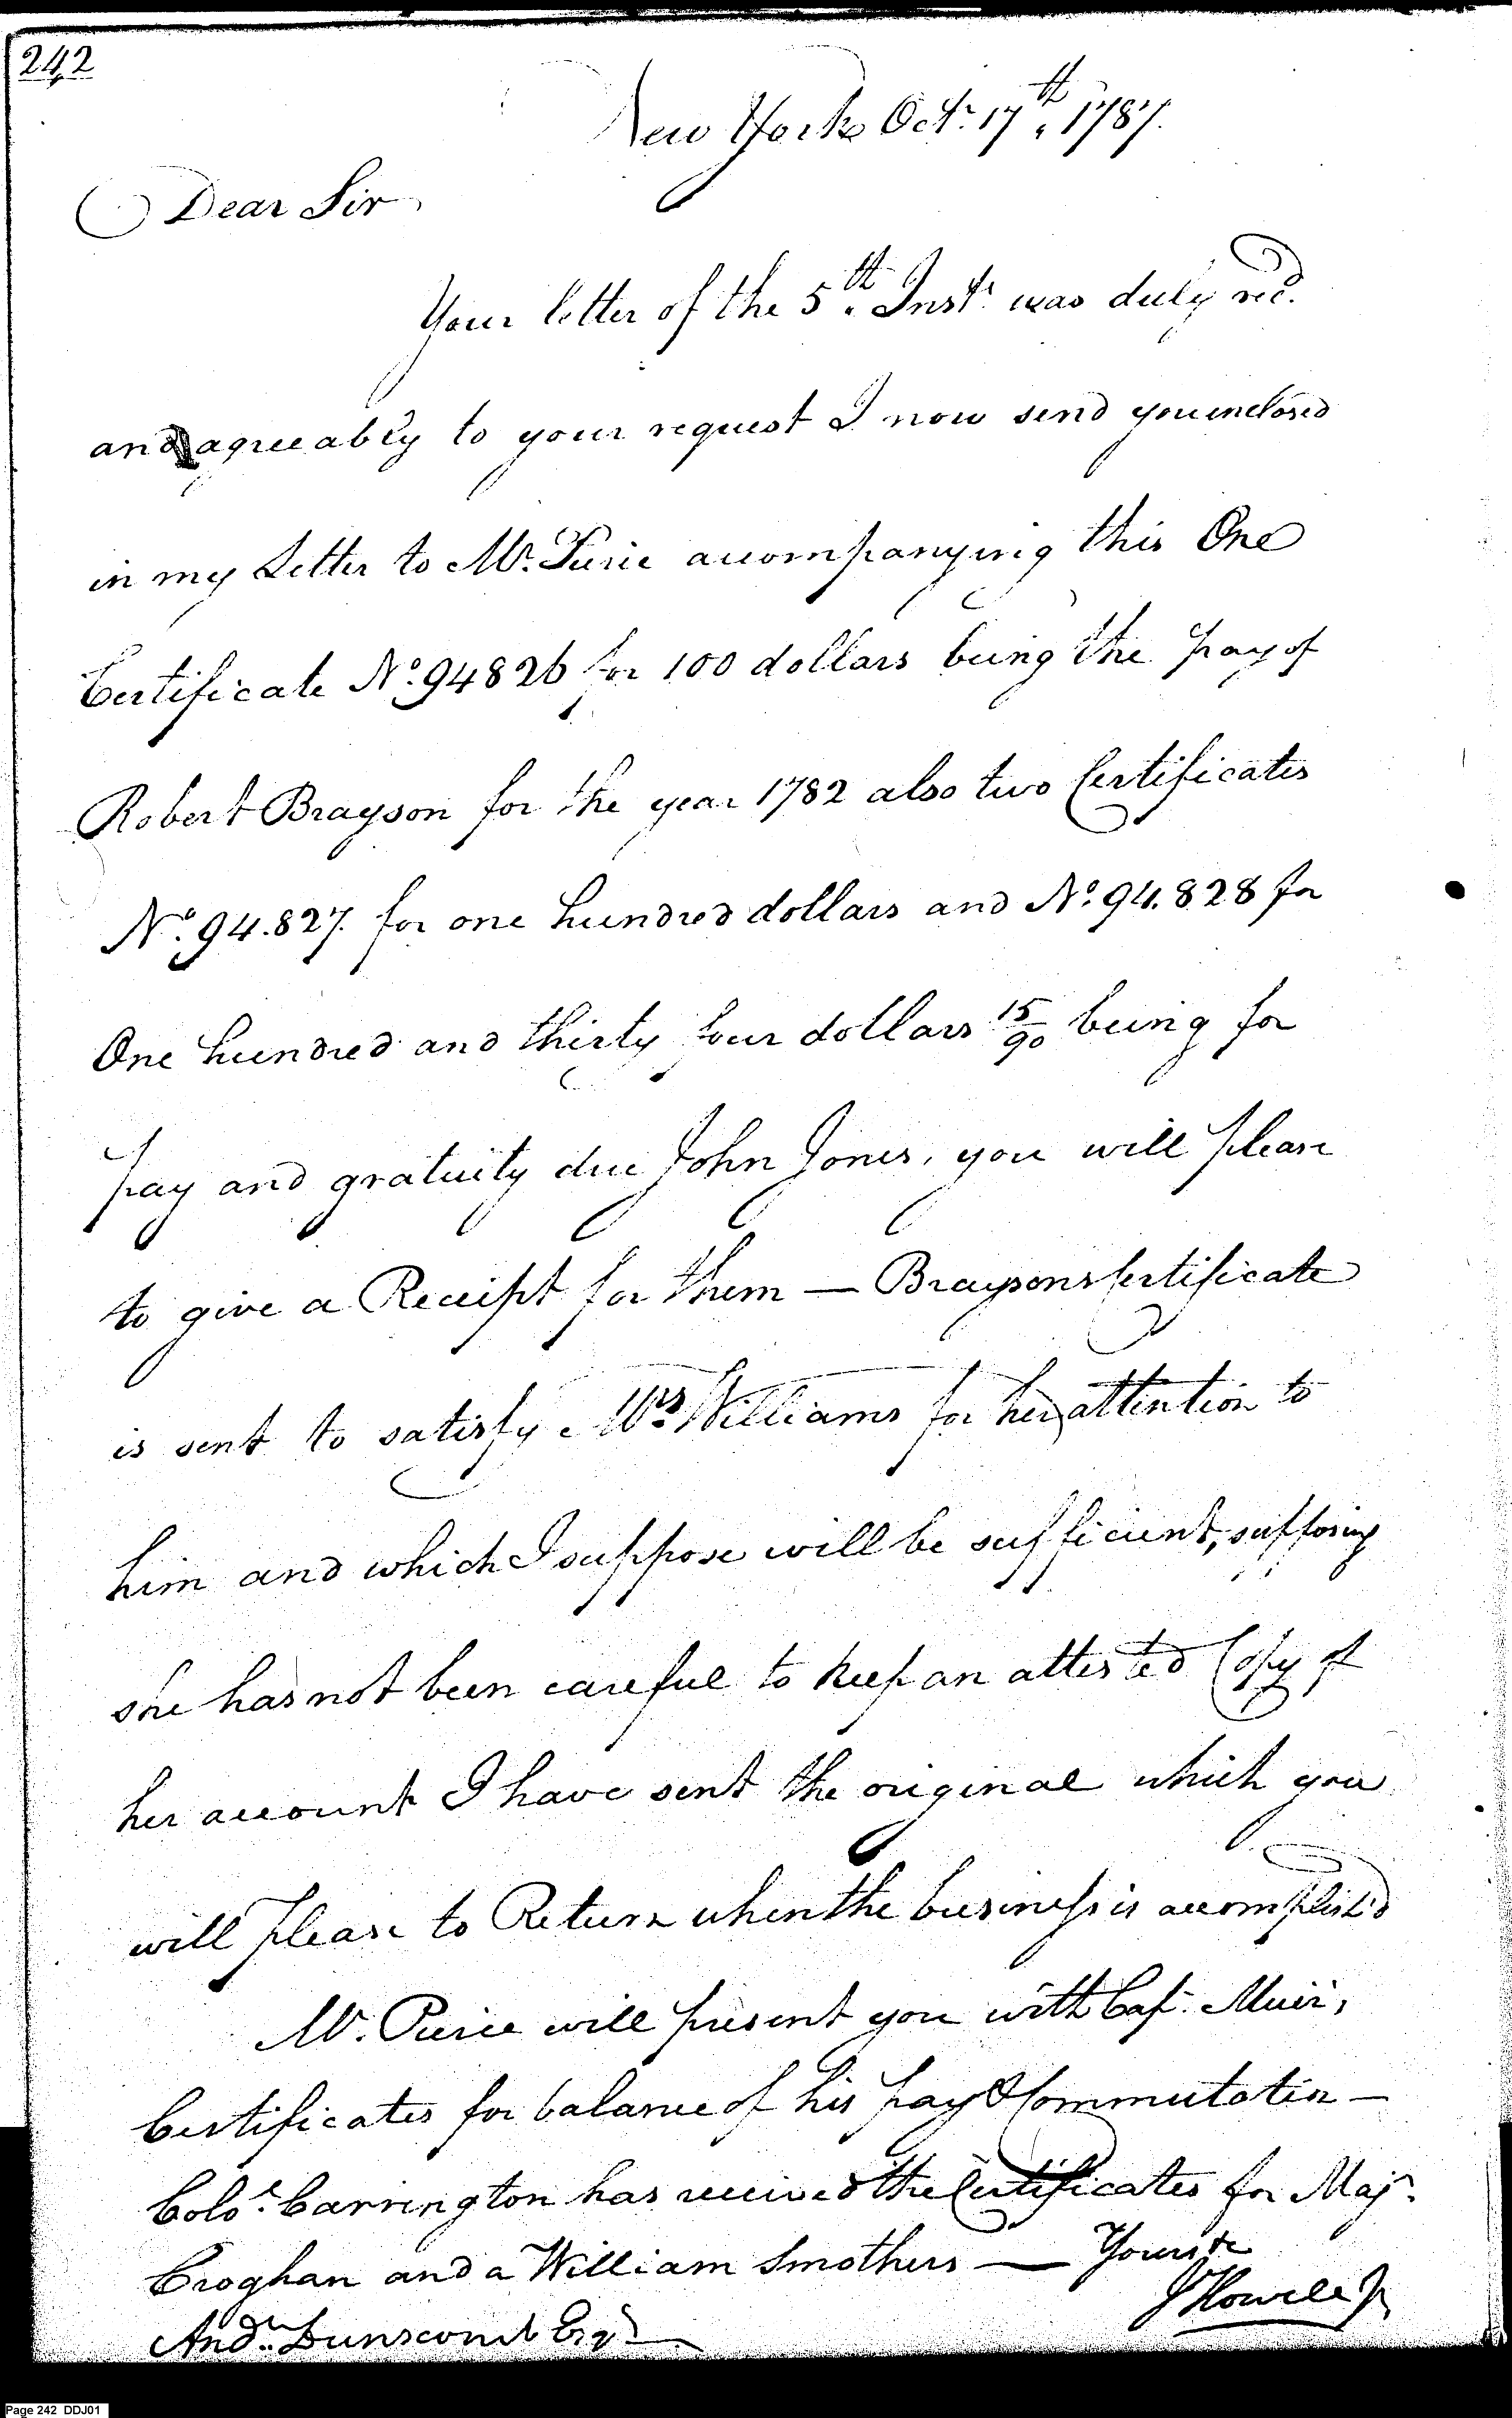 242
New York Octr. 17th, 1787.
Dear Sir
Your letter of the 5th. Inst. was duly recd.
and agreeably to your request I now send you inclosed
in my Letter to Mr. Pierce accompanying this One
Certificate No. 94826 for 100 dollars being the pay of
Robert Brayson for the year 1782 also two Certificates
No. 94.827. for one hundred dollars and No. 94.828 for
One hundred and thirty four dollars 15/90 being for
pay and gratuity due John Jones, you will please
to give a Receipt for them — Braysons Certificate
is sent to satisfy Mrs. Williams for her attention to
him and which I suppose will be sufficient, supposing
she has not been careful to keep an attested Copy of
her account I have sent the original which you
will please to Return when the business is accomplish'd
Mr. Pierce will present you with Cap. Muir,
Certificates for balance of his pay & Commutation —
Colo. Carrington has received the Certificates for Majr.
Croghan and a William Smothers — Yours &c
J Howell Jr
Andw. Dunscomb Esqr
Page 242 DDJ01